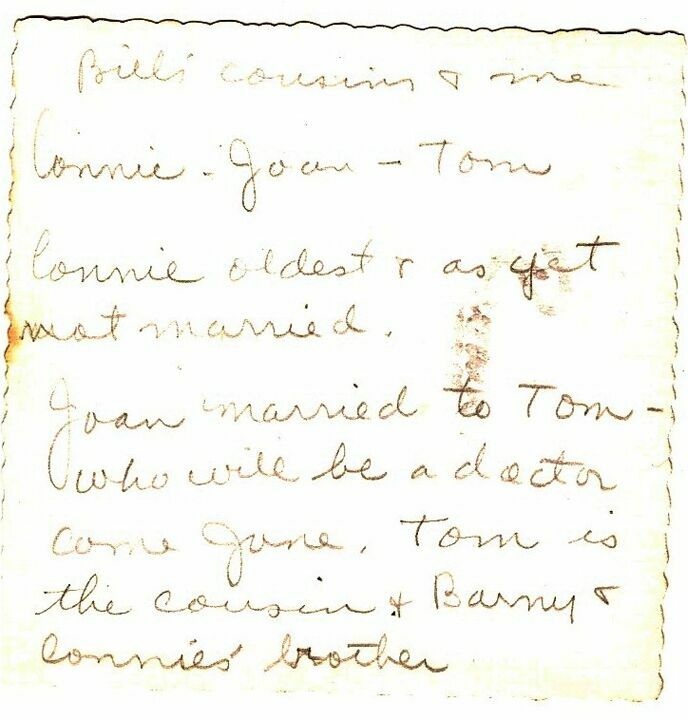 Bill's cousins & me
Connie - Joan - Tom
Connie oldest & as yet
not married.
Joan married to Tom -
who will be a doctor
come June. Tom is
the cousin & Barny &
Connies' brother